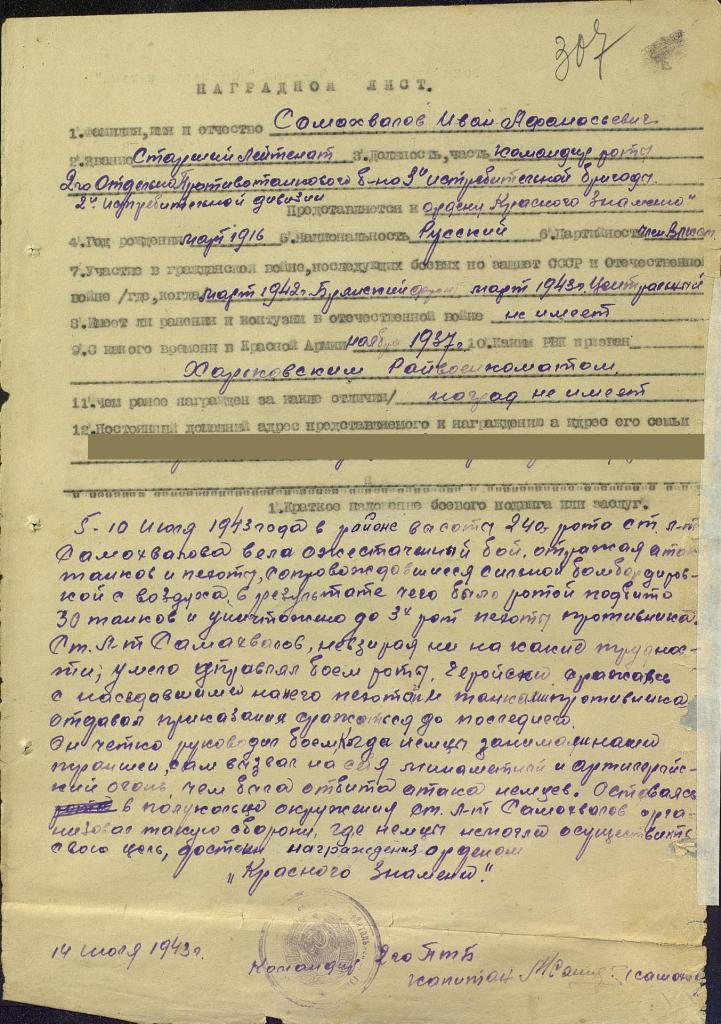 307
НАГРАДНОЙ ЛИСТ.
1.Фамилия,имя и отчество Самохвалов Иван Афанасьевич
2.Звание Старший Лейтенат 3.Должность,часть командир роты
2го Отдельно Противотанкового б-на 3й истребительной бригады.
2й истребительной дивизии
Представляется к ордену Красного Знамени"
4.Год рождения март 1916 5.Национальность Русский 6.Партийность член ВЛКСМ.
7.Участие в гражданской войне,последующих боевых по защите СССР и Отечественно
войне /где,когда март 1942г. Брянский фронт март 1943г. Центральный
8.Имеет ли ранения и контузии в отечественной войне не имеет
9.С какого времени в Красной Армии ноябрь 1937г 10.Каким РВК призван
Харьковским Райвоенкоматом.
11.Чем ранее награжден за какие отличия/ наград не имеет
12.Постоянный домашний адрес представляемого к награждению а идрес его семьи
1.Краткое изложение боевого подвига или заслуг.
5-10 июля 1943 года в районе высоты 240, рота ст. л-т
Самохвалова вела ожестаченный бой, отражая атак
танков и пехоты, сопровождавшиеся сильной бомбардиров-
кой с воздуха, в результате чего было ротой подбито
30 танков и уничтожено до 3х рот пехоты противника.
Ст. Л-т Самахвалов, невзирая ни на какие труднос-
ти, умело управлял боем роты. Геройски сражаясь
с наседавшими на него пехотой и танками противника
отдавал приказания сражаться до последнего.
Он четко руководил боем, когда немцы занимали наши
траншеи, сам вызвал на себя минаметный и артилерийс-
кий огонь, чем была отбита атака немцев. Оставаясь
в полукольце окружения ст. л-т Самохвалов орга-
низовал такую оборону, где немцы немогли осуществить
свою цель, достоин награждения орденом
„Красного Знамени".
14 июля 1943г.
Командир 2го ПТБ
капитан